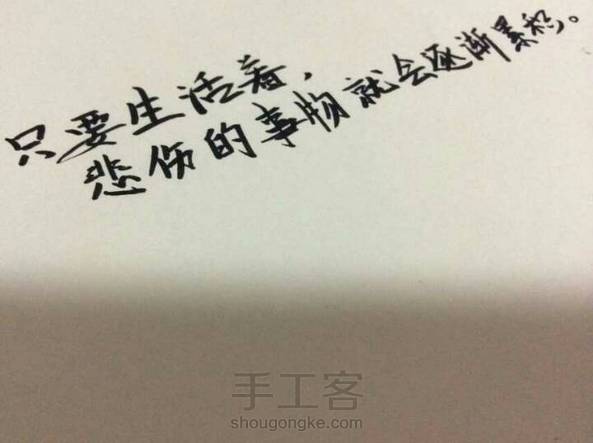 只要生活着，
悲伤的事物就会逐渐累积。
手工客
shougongke.com